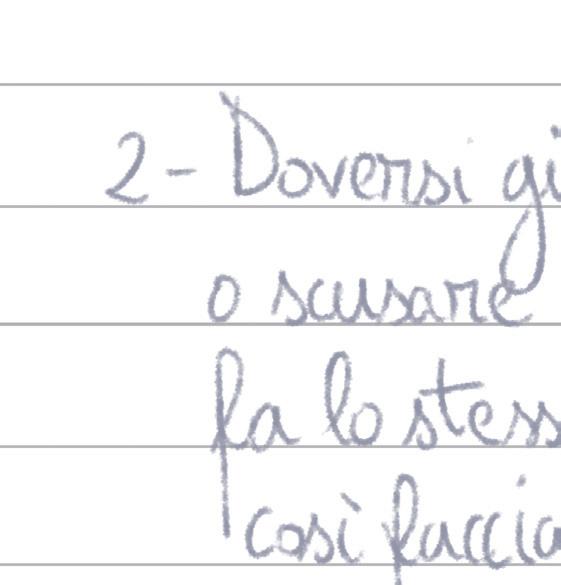 2- Doversi gi
o scusare
fa lo stess
così faccia